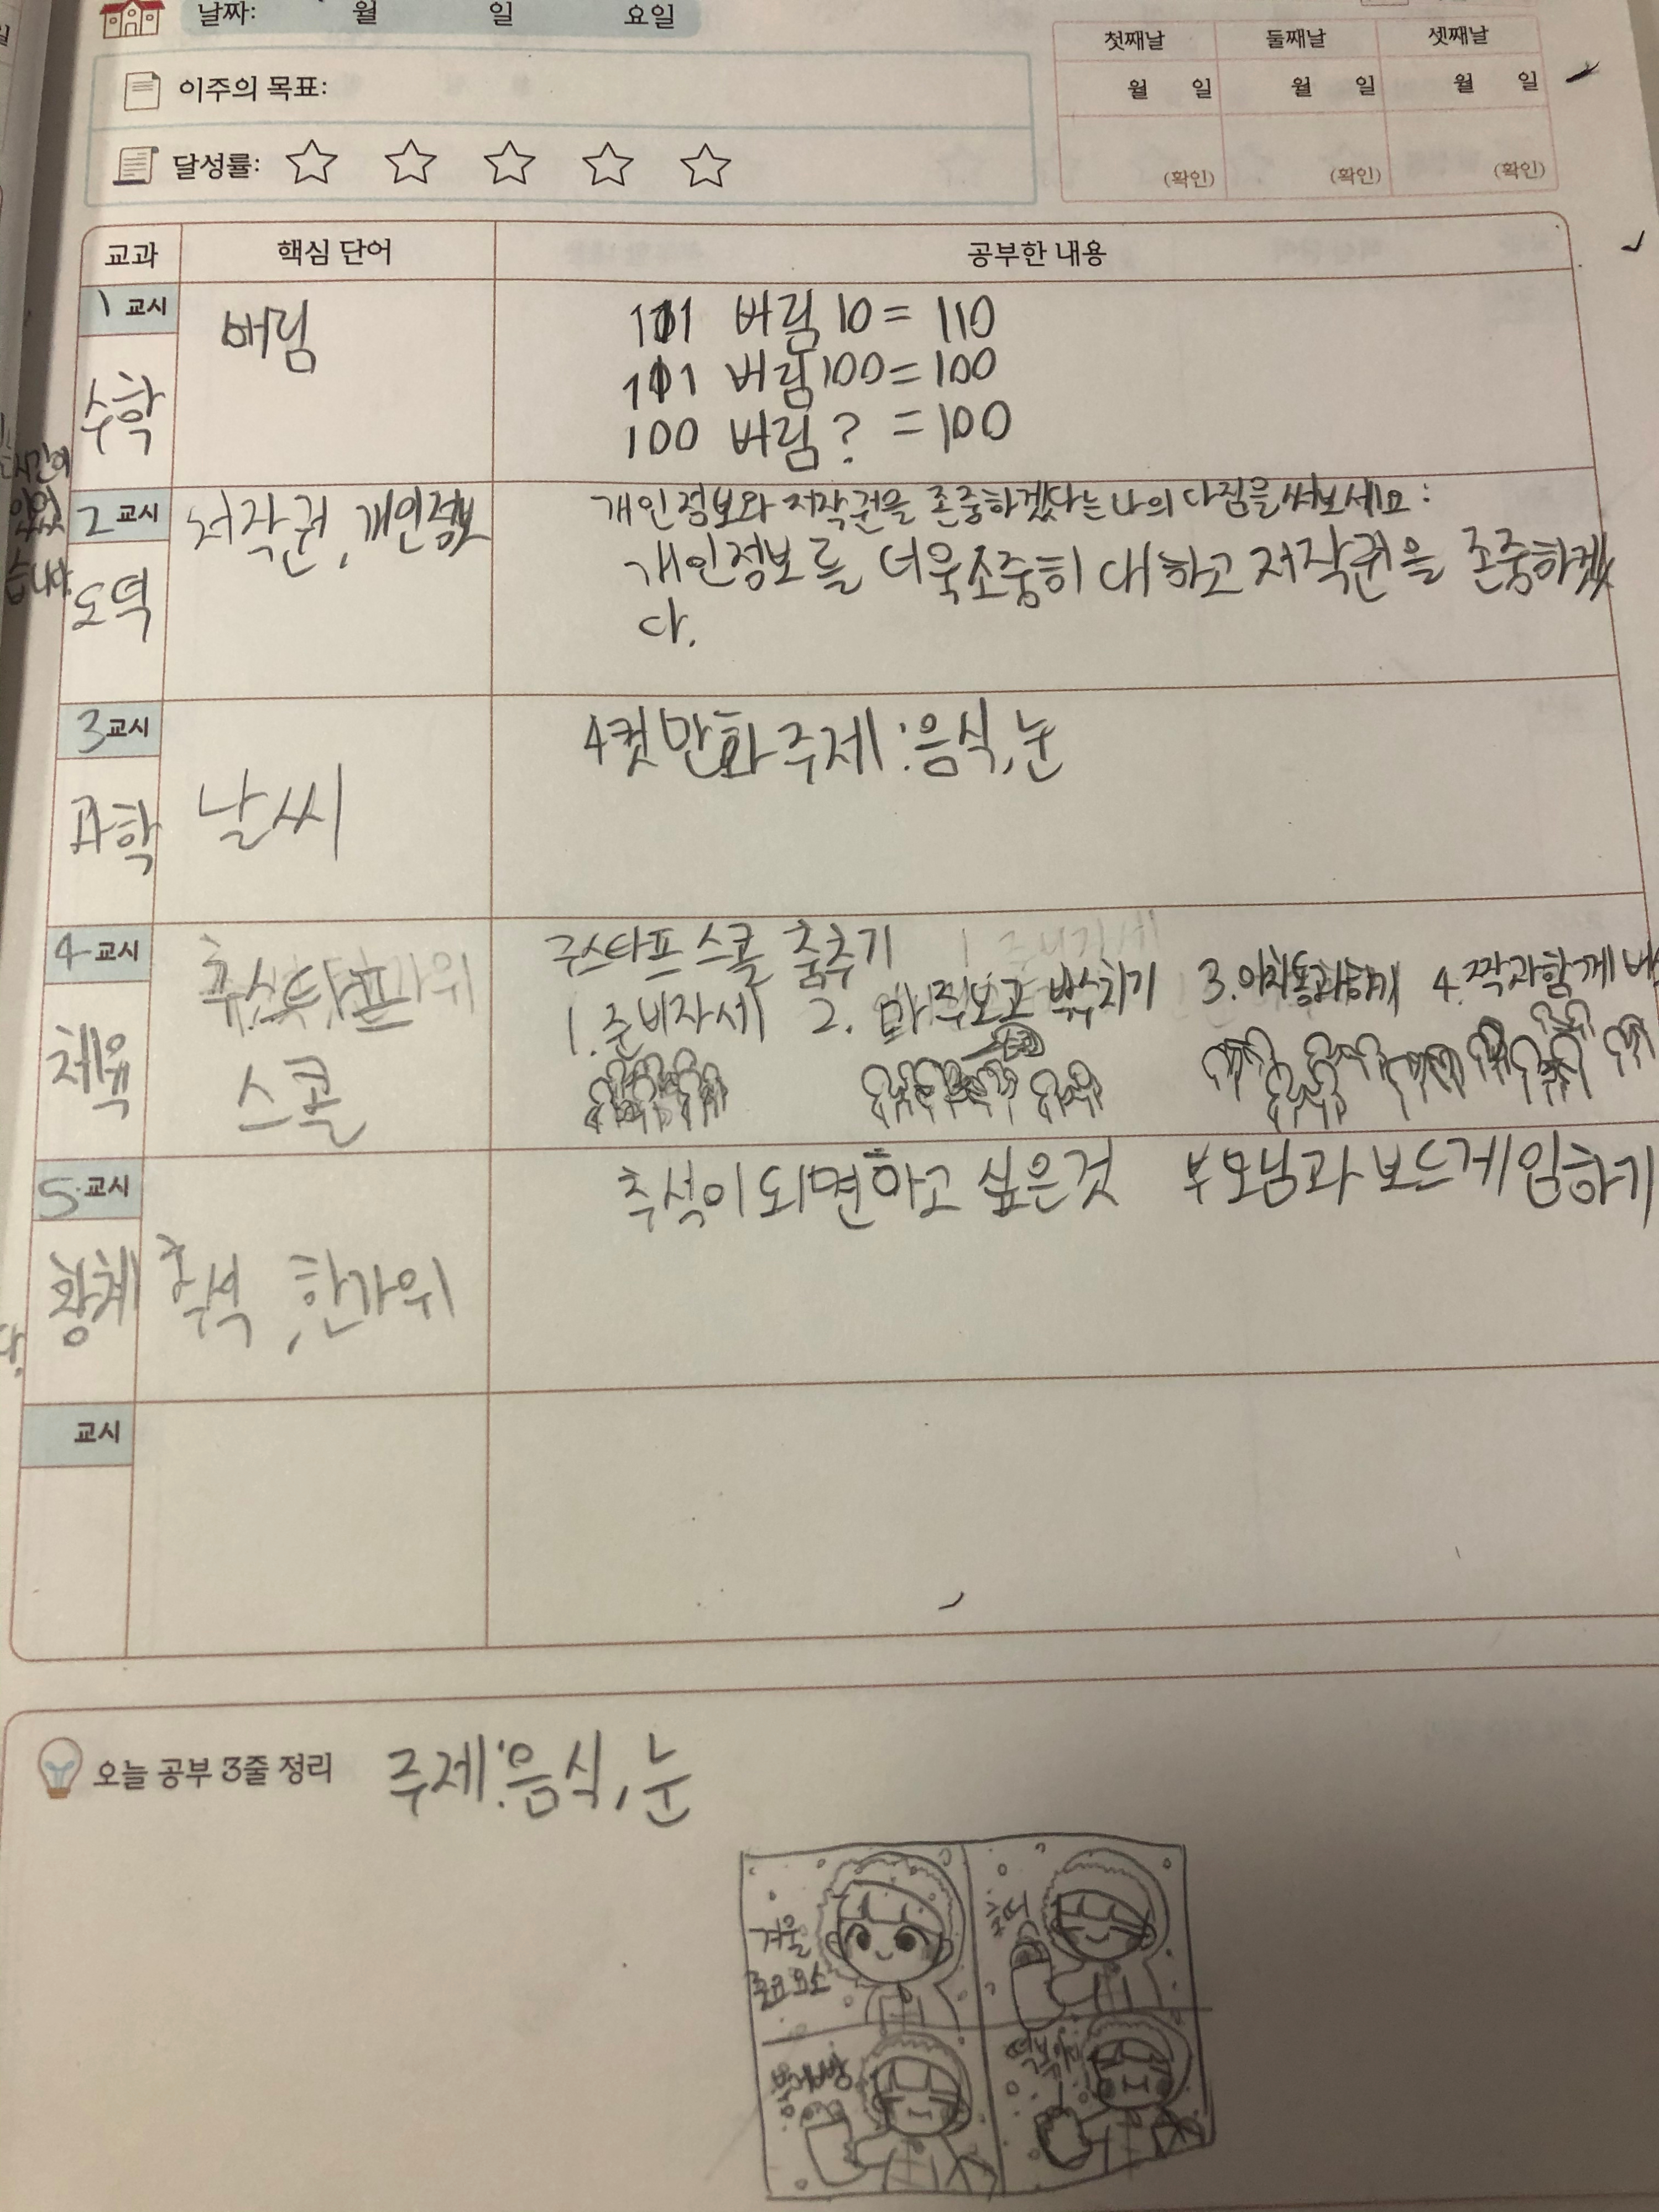 날짜: 월 일 요일
첫째날 둘째날 셋째날
월 일 월 일 월 일
(확인) (확인) (확인)
이주의 목표:
달성률:
교과 핵심 단어 공부한 내용
1 교시
수학
버림
101 버림 10 = 110
101 버림 100 = 100
100 버림 ? = 100
2 교시
도덕
저작권, 개인정보
개인정보와 저작권을 존중하겠다는 나의 다짐을 써보세요:
개인정보를 더욱소중히 대하고 저작권을 존중하겠
다.
3 교시
과학
날씨
4컷만화주제:음식,눈
4 교시
체육
구스타프
스콜
구스타프 스콜 춤추기
1. 준비자세 2. 마주보고 박수치기 3. 4. 짝과함께
5 교시
창체
추석, 한가위
추석이되면하고 싶은것 부모님과 보드게임하기
교시
오늘 공부 3줄 정리 주제:음식,눈
겨울
필요요소
호떡
붕어빵
떡볶이